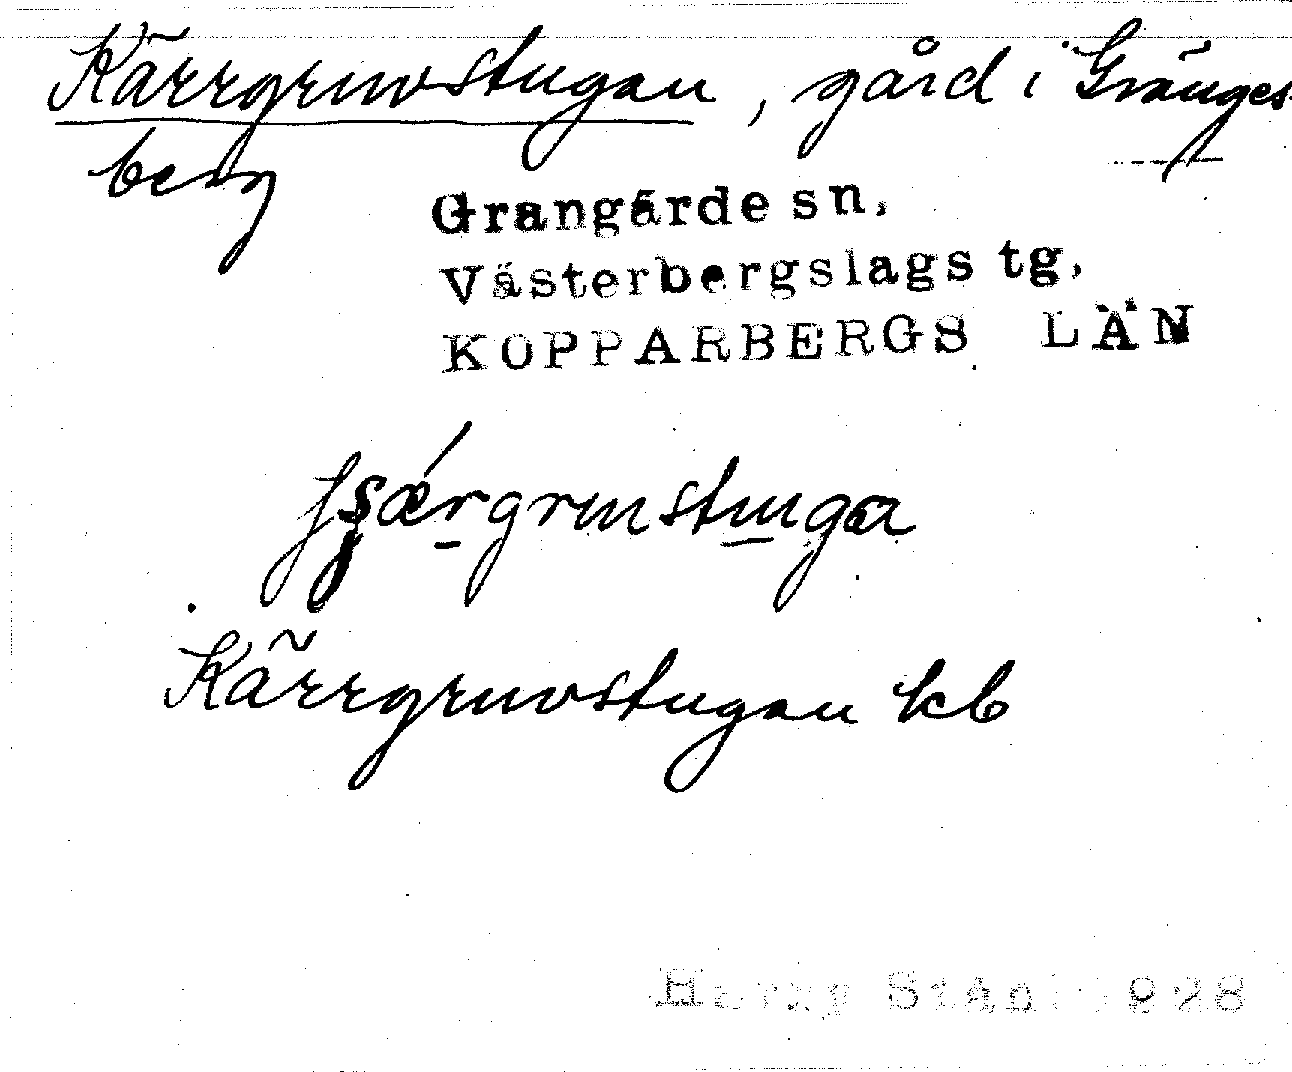 Kärrgruvstugan, gård i Gränges-
berg
Grangärde sn,
Västerbergslags tg,
KOPPARBERGS LÄN
Kärrgruvstugan kb
Harry Ståhl 1928